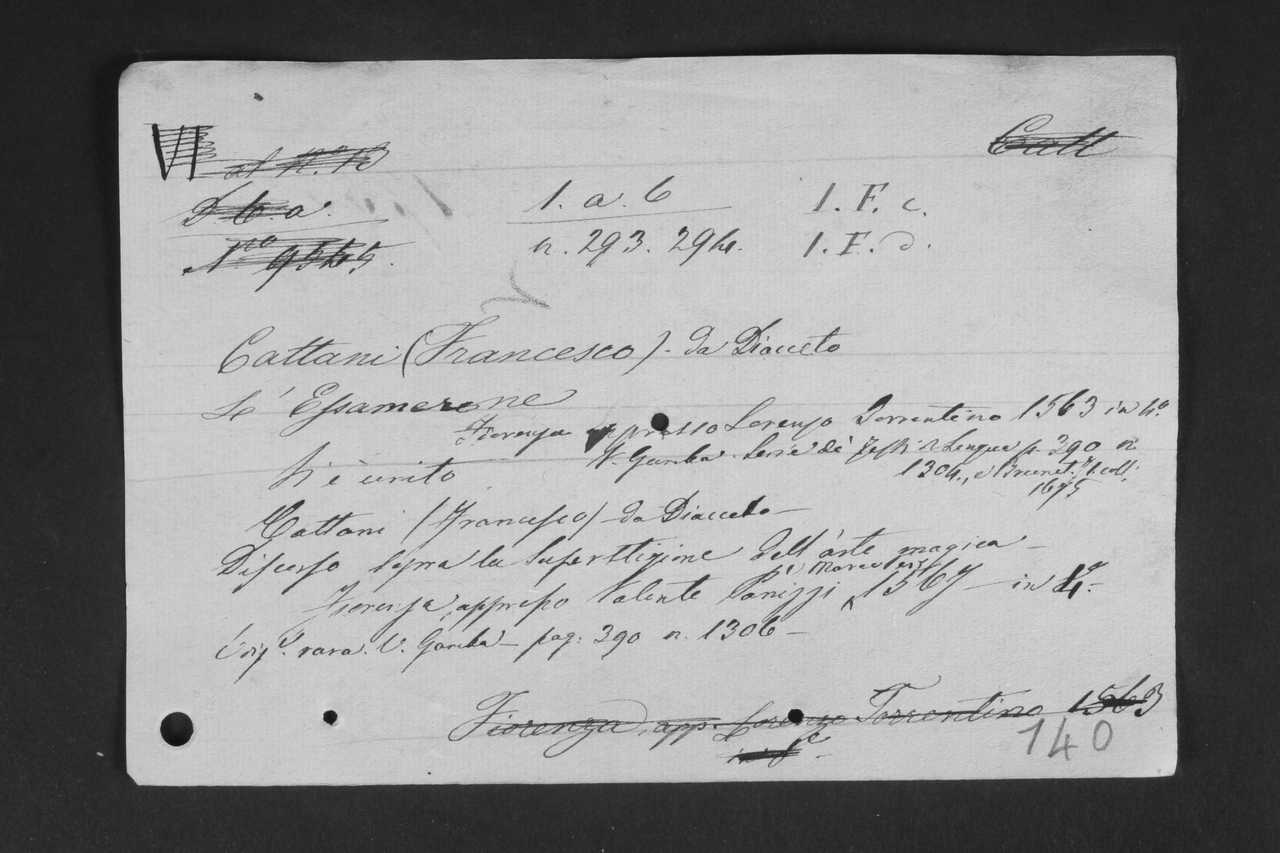 VI
al N.º 13
Catt
1. a. 6
1. F. c.
n. 293. 294.
1. F. d.
Cattani (Francesco) - da Diacceto
L' Essamerone
Fiorenza appresso Lorenzo Torrentino 1563 in 4.º
V. Gamba Serie de' Testi di Lingua p. 390 n
1304., e Brunet. 1. coll.
1675
Vi è unito
Cattani (Francesco) - da Diacceto -
Discorso sopra la superstizione dell'arte magica -
Fiorenza, appresso Valente Panizzi e Marco Peri 1567 - in 4.º
rara. V. Gamba - pag: 390 n. 1306 -
Fiorenza, app. Lorenzo Torrentino 1563
140